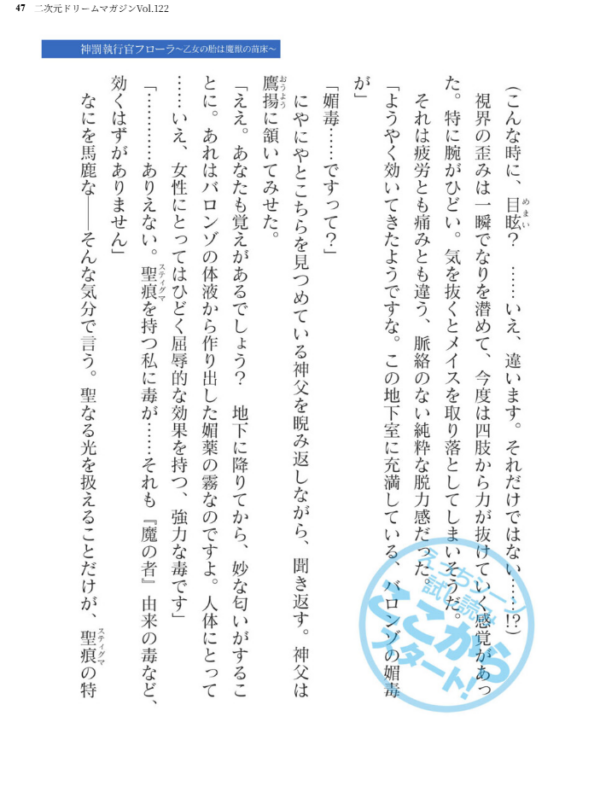 47 二次元ドリームマガジンVol.122
神罰執行官フローラ～乙女の胎は魔獣の苗床～
(こんな時に、目眩？　……いえ、違います。それだけではない……!?)
視界の歪みは一瞬でなりを潜めて、今度は四肢から力が抜けていく感覚があっ
た。特に腕がひどい。気を抜くとメイスを取り落としてしまいそうだ。
それは疲労とも痛みとも違う、脈絡のない純粋な脱力感だった。
「ようやく効いてきたようですな。この地下室に充満している、バロンゾの媚毒
が」
「媚毒……ですって？」
にやにやとこちらを見つめている神父を睨み返しながら、聞き返す。神父は
鷹揚に頷いてみせた。
「ええ。あなたも覚えがあるでしょう？　地下に降りてから、妙な匂いがするこ
とに。あれはバロンゾの体液から作り出した媚薬の霧なのですよ。人体にとって
……いえ、女性にとってはひどく屈辱的な効果を持つ、強力な毒です」
「…………ありえない。聖痕を持つ私に毒が……それも『魔の者』由来の毒など、
効くはずがありません」
なにを馬鹿な――そんな気分で言う。聖なる光を扱えることだけが、聖痕の特
めまい
おうよう
スティグマ
スティグマ
えっちシーン
試し読み
ここから
スタート!